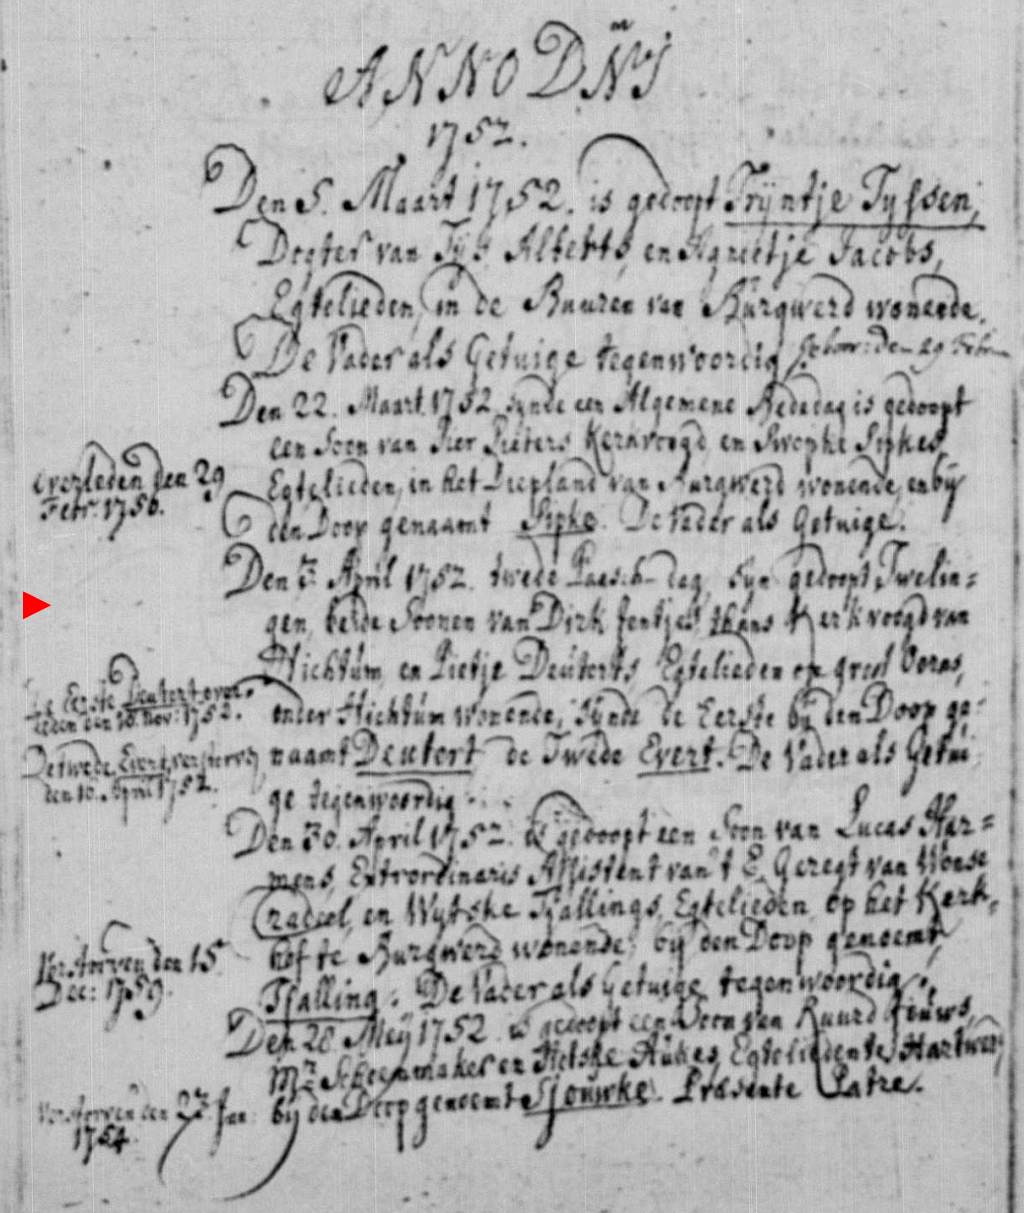 ANNO DNI
1752.
Den 5. Maart 1752. is gedoopt Trÿntje Tyssen,
Dogter van Tys Alberts, en Agneetje Jacobs,
Egtelieden, in de Buuren van Burgwerd wonende.
De Vader als Getuige tegenwoordig. gebooren den 29 Febr
Den 22. Maart 1752 synde een Algemene Bededag is gedoopt
een Soon van Pier Pieters Kerkvoogd, en Swopke Sipkes,
overleden den 29
Egtelieden, in het Diepland van Burgwerd wonende, en by
Febr: 1756.
den Doop genaamt Sipke. De Vader als Getuige.
Den 3 April 1752. twede Paesch-dag, syn gedoopt Twelin=
gen, beide Soonen van Dirk Jentjes thans Kerkvoogd van
Hichtum, en Pietje Deuterts Egtelieden op groot
de Eerste Deutert over-
leden den 18. Nov: 1752.
onder Hichtum wonende, synde de Eerste by den Doop ge=
De twede Evert verstorven
naamt Deutert de Twede Evert. De Vader als Getui
den 10. April 1752.
ge tegenwoordig
Den 30. April 1752. is gedoopt een Soon van Lucas Har=
mens, Extrordinaris Assistent van 't E. Geregt van Wonse
radeel, en Wytske Tjallings, Egtelieden op het Kerk=
Verstorven den 15
hof te Burgwerd wonende, by den Doop genoemt
Dec: 1759.
Tjalling. De Vader als Getuige tegenwoordig.
Den 28 Meÿ 1752. is gedoopt een Soon van Ruurd
Mr. Scheepmaker en Hetske Aukes, Egtelieden te Hartwerd
Verstorven den 27 Jan:
by den Doop genoemt Sjouwke. Præsente Patre.
1754.